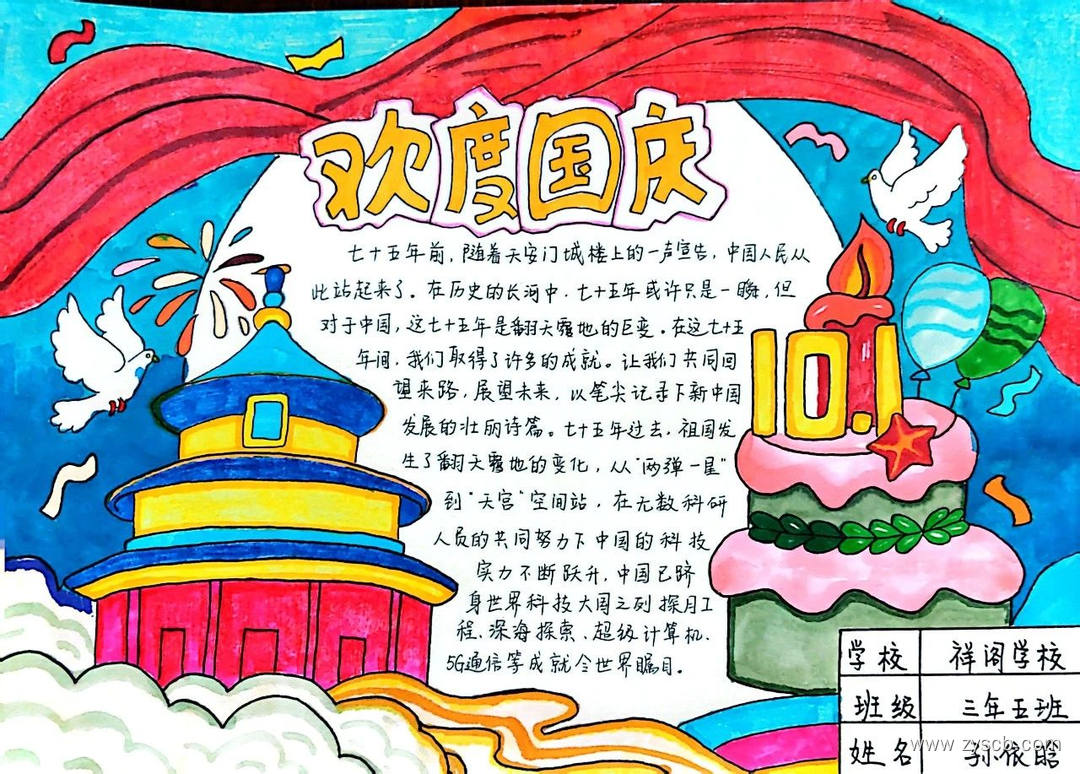 欢度国庆
七十五年前,随着天安门城楼上的一声宣告,中国人民从
此站起来了。在历史的长河中,七十五年或许只是一瞬,但
对于中国,这七十五年是翻天覆地的巨变。在这七十五
年间,我们取得了许多的成就。让我们共同回
望来路,展望未来,以笔尖记录下新中国
发展的壮丽诗篇。七十五年过去,祖国发
生了翻天覆地的变化,从"两弹一星"
到"天宫"空间站,在无数科研
人员的共同努力下中国的科技
实力不断跃升,中国已跻
身世界科技大国之列探月工
程、深海探索、超级计算机、
5G通信等成就令世界瞩目。
10.1
学校 祥阁学校
班级 三年五班
姓名 孙依晗
www.zyscb.com